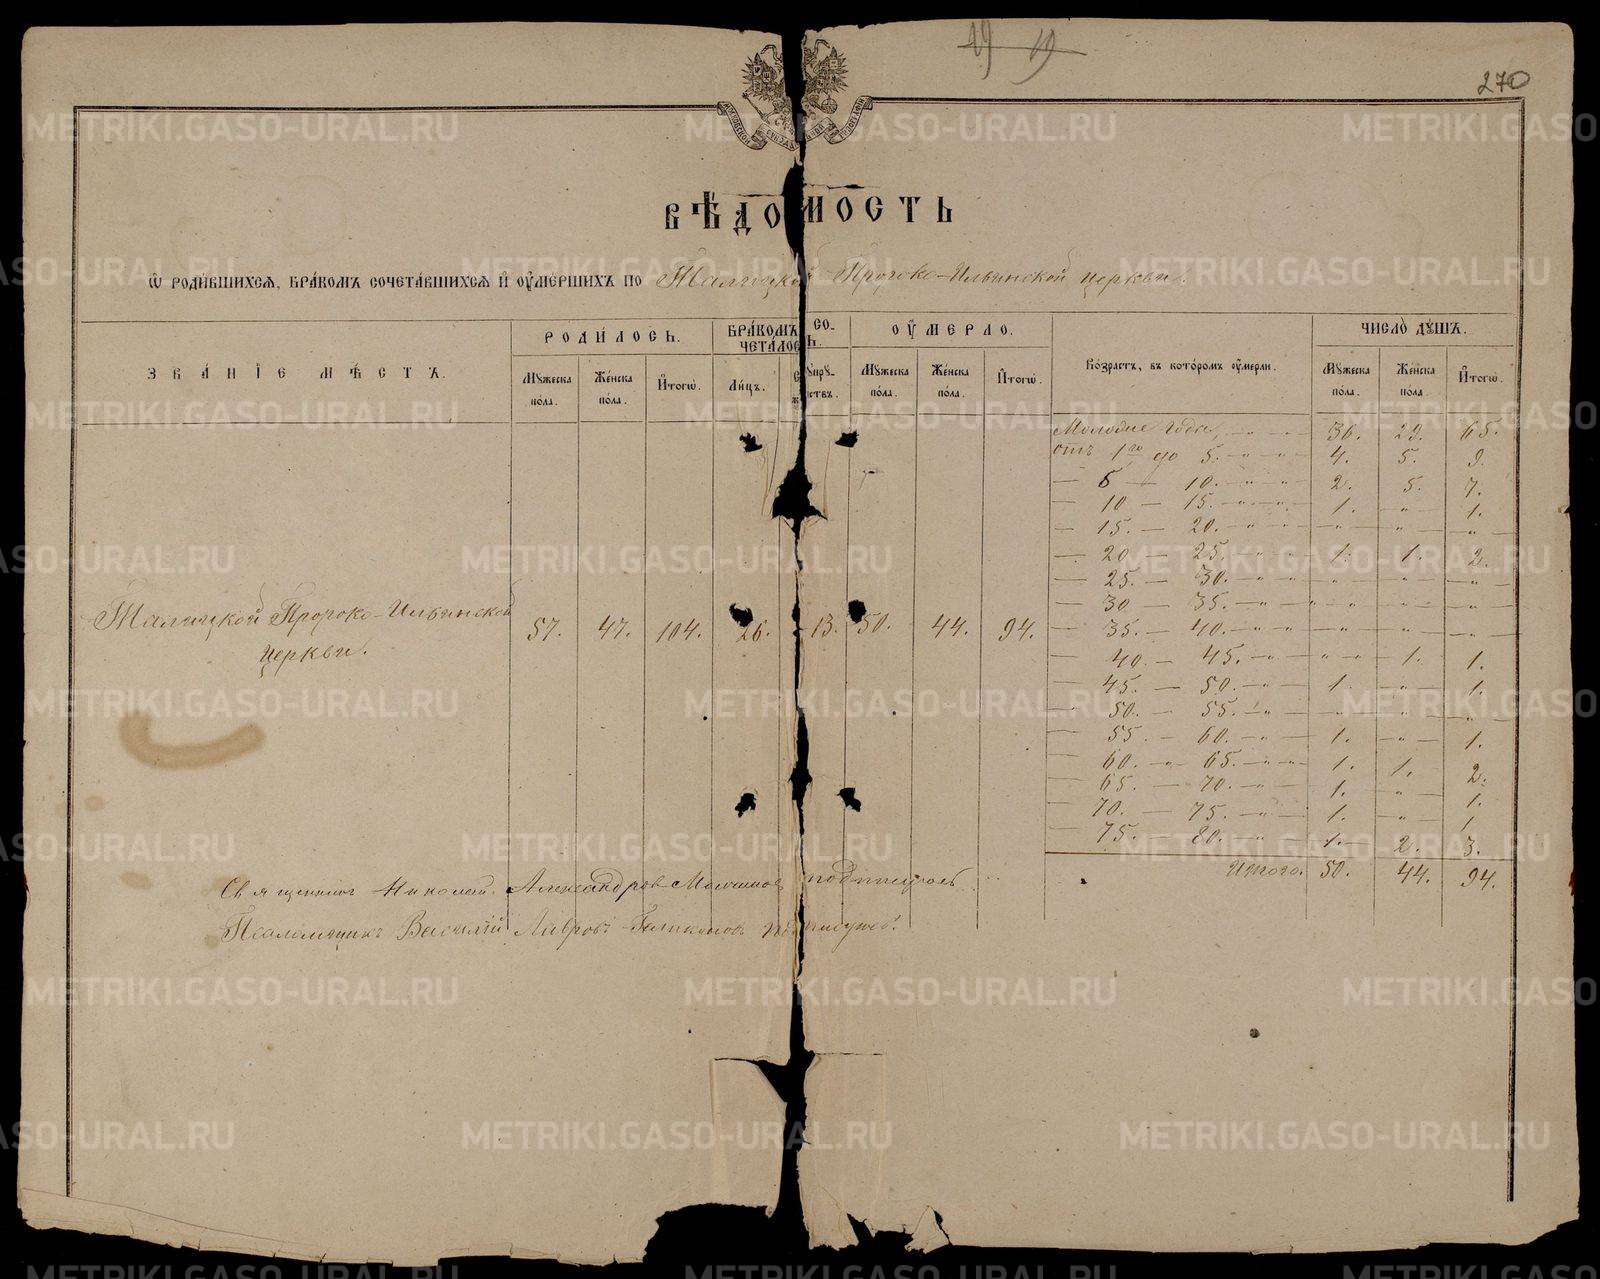 19 19
270
МОСКОВСКОЙ СѴНОДАЛЬНОЙ ТИПОГРАФІИ
ВѢДОМОСТЬ
Ѡ РОДИ́ВШИХСЯ, БРА́КОМЪ СОЧЕТА́ВШИХСЯ И҆ ОУ҆МЕ́РШИХЪ ПО Талицкой Пророко-Ильинской церкви.
ЗВА́НІЕ МѢ́СТЪ.
РОДИ́ЛОСЬ.
Мꙋ́жеска по́ла.
Же́нска по́ла.
И҆тогѡ̀.
БРА́КОМЪ СО-
ЧЕТА́ЛОСЬ.
Ли́цъ.
Сꙋпрꙋ-
жествъ.
ОУ҆́МЕРЛО.
Мꙋ́жеска по́ла.
Же́нска по́ла.
И҆тогѡ̀.
Во́зрастъ, въ кото́ромъ оу҆́мерли.
ЧИСЛО̀ ДꙊ́ШЪ.
Мꙋ́жеска по́ла.
Же́нска по́ла.
И҆тогѡ̀.
Талицкой Пророко-Ильинской
церкви.
57. 47. 104. 26. 13. 50. 44. 94.
Молодые года, — „ — „ 36. 29. 65.
отъ 1го до 5. — „ — „ — 4. 5. 9.
— 5 — 10. — „ — „ — 2. 5. 7.
— 10 — 15. — „ — „ — 1. „ 1.
— 15. — 20. — „ — „ — „ — „ — „
— 20 — 25. — „ — „ 1. 1. 2.
— 25. — 30. — „ — „ — „ — „ — „
— 30 — 35. — „ — „ — „ — „ — „
— 35. — 40. — „ — „ — „ — „ — „
— 40. — 45. — „ — „ „ — 1. 1.
— 45. — 50. — „ — 1. „ 1.
— 50. — 55. — „ — „ — „ — „
— 55. — 60. — „ — 1. — „ — 1.
— 60. — „ — 65. — „ — „ 1. 1. 2.
— 65. — 70. — „ 1. „ 1.
— 70. — 75. — „ — 1. — „ — 1.
— 75. — 80. — „ — 1. 2. 3.
Итого. 50. 44. 94.
Священникъ Николай Александровъ подписуюсь
Псаломщикъ Василій Лавровъ подписуюсь.
METRIKI.GASO-URAL.RU